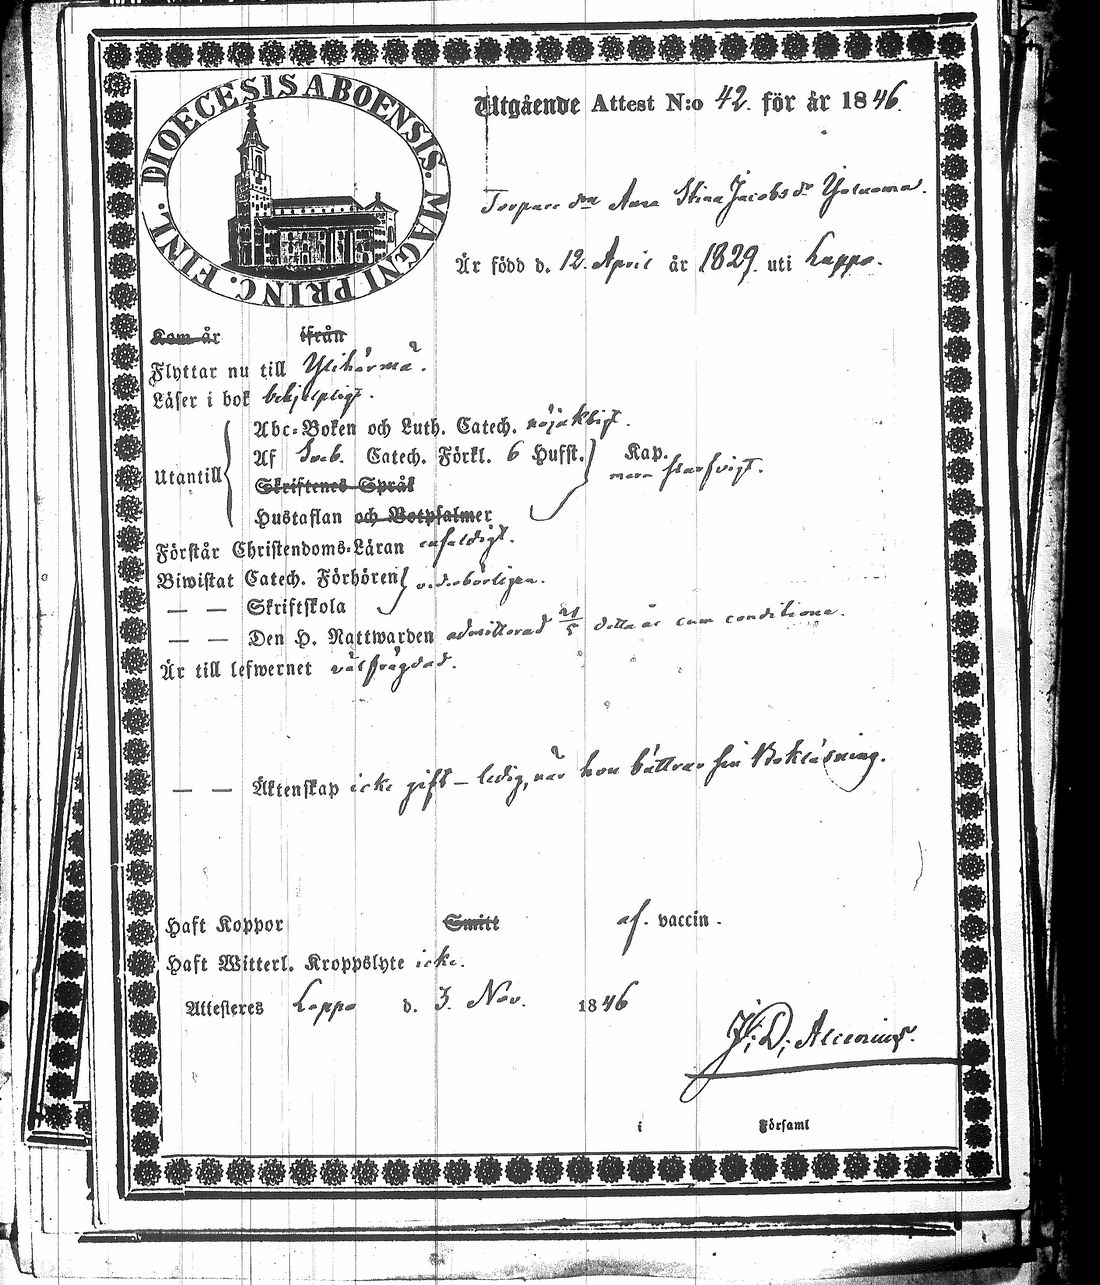 DIOECESIS ABOENSIS. MAGNI PRINC. FINL.
Utgående Attest N:o 42. för år 1846.
Torpare dra Anna Stina Jacobs dr
Är född d. 12. April år 1829. uti Lappo.
Kom år ifrån
Flyttar nu till Ylihärmä.
Läser i bok behjelpligt.
Abc-Boken och Luth. Catech. nöjaktigt.
Utantill Af Sveb. Catech. Förkl. 6 Hufst. Kap.
mera slarfvigt.
Skriftenes Språk
Hustaflan och Botpsalmer
Förstår Christendoms-Läran enfaldigt.
Biwistat Catech. Förhören vederbörligen.
— — Skriftskola
— — Den H. Nattwarden admitterad 21/5 detta år cum conditione.
Är till lefwernet välfrägdad.
— — Äktenskap icke gift – ledig, när hon bättrar sin Bokläsning.
Haft Koppor Smitt af vaccin.
Haft Witterl. Kroppslyte icke.
Attesteres Lappo d. 3. Nov. 1846
J. D. Alcenius.
i Församl